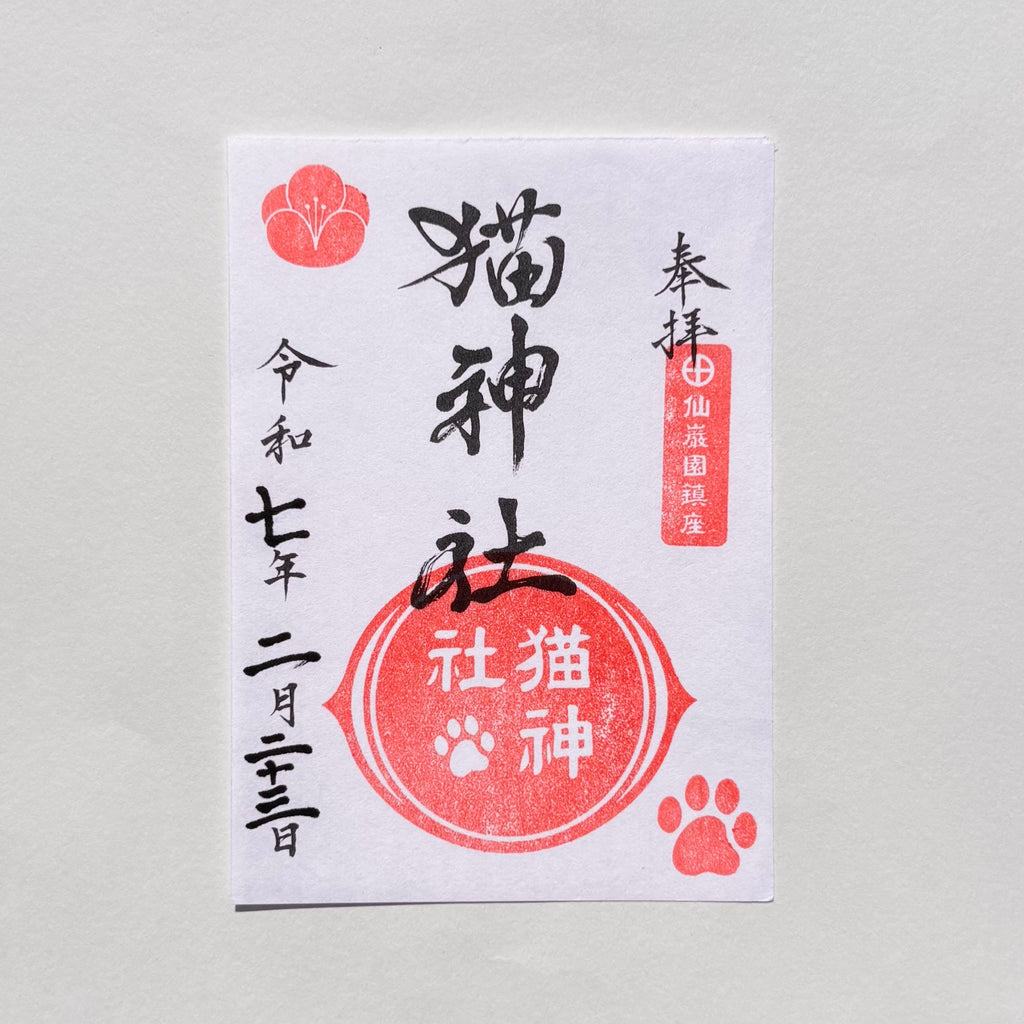 奉拝
仙巌園鎮座
猫神社
猫神
社
令和七年二月二十三日